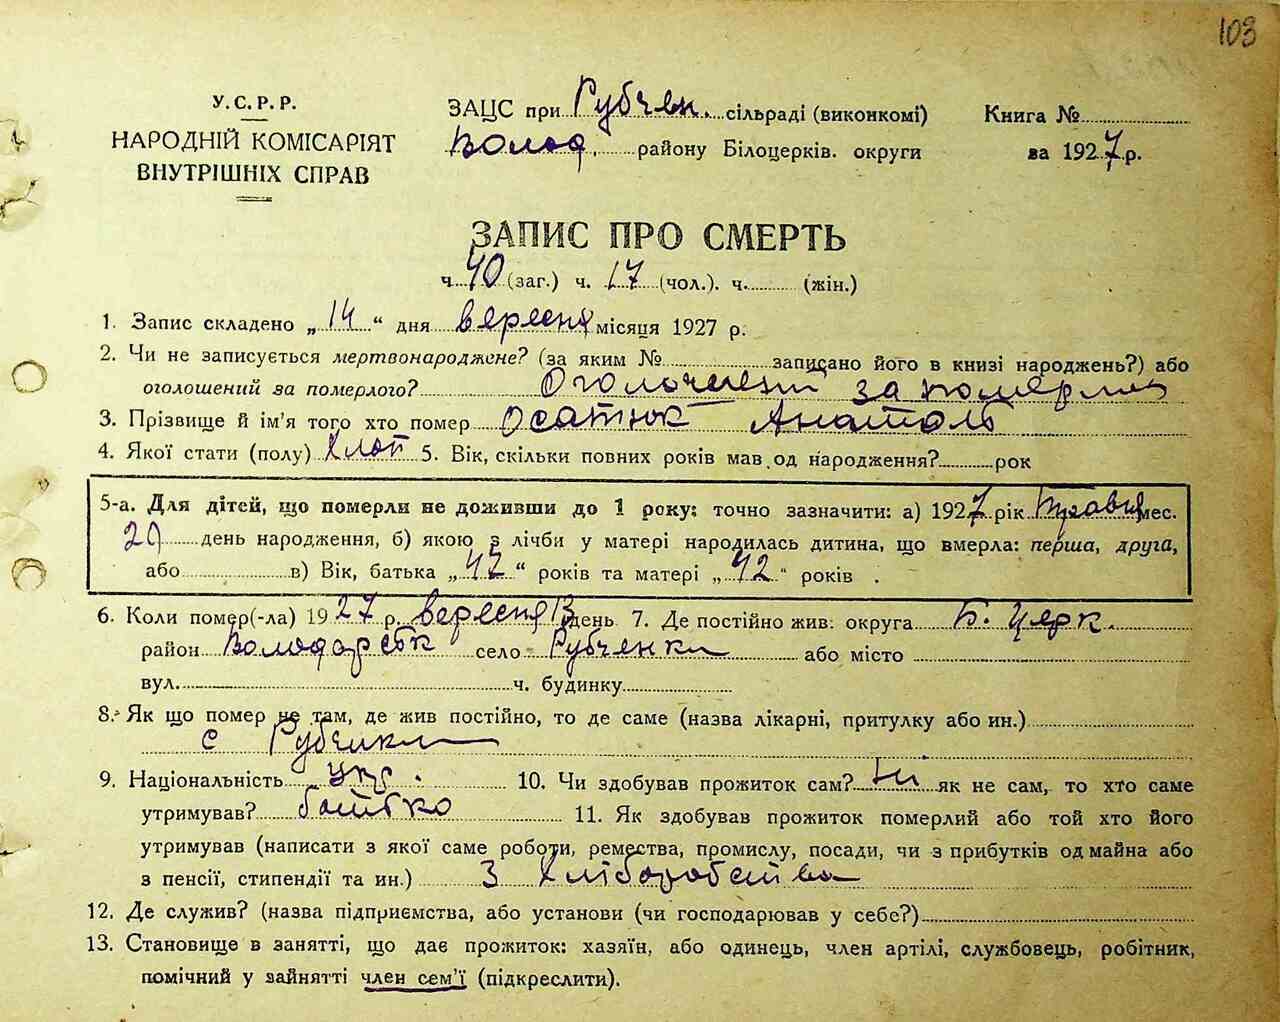 103
У.С.Р.Р.
НАРОДНІЙ КОМІСАРІЯТ
ВНУТРІШНІХ СПРАВ
ЗАЦС при Рубчен. сільраді (виконкомі) Книга №
Волод. району Білоцерків. округи за 1927 р.
ЗАПИС ПРО СМЕРТЬ
ч. 40 (заг.) ч. 17 (чол.). ч. (жін.)
1. Запис складено „14“ дня вересня місяця 1927 р.
2. Чи не записується мертвонароджене? (за яким № записано його в книзі народжень?) або
оголошений за померлого? за
3. Прізвище й ім'я того хто помер Осатюк Анатоль
4. Якої стати (полу) хлоп 5. Вік, скільки повних років мав од народження? рок
5-а. Для дітей, що померли не доживши до 1 року: точно зазначити: а) 1927 рік травня мес.
день народження, б) якою з лічби у матері народилась дитина, що вмерла: перша, друга,
або в) Вік, батька „42“ років та матері „42“ років .
6. Коли помер(-ла) 1927 р. вересня 13 день 7. Де постійно жив: округа Б. Церк.
район Володарськ село Рубченки або місто
вул. ч. будинку
8. Як що помер не там, де жив постійно, то де саме (назва лікарні, притулку або ин.)
с Рубченки
9. Національність укр. 10. Чи здобував прожиток сам? Ні як не сам, то хто саме
утримував? батько 11. Як здобував прожиток померлий або той хто його
утримував (написати з якої саме роботи, ремества, промислу, посади, чи з прибутків од майна або
з пенсії, стипендії та ин.) З хліборобства
12. Де служив? (назва підприємства, або установи (чи господарював у себе?)
13. Становище в занятті, що дає прожиток: хазяїн, або одинець, член артілі, службовець, робітник,
помічний у зайнятті член сем'ї (підкреслити).